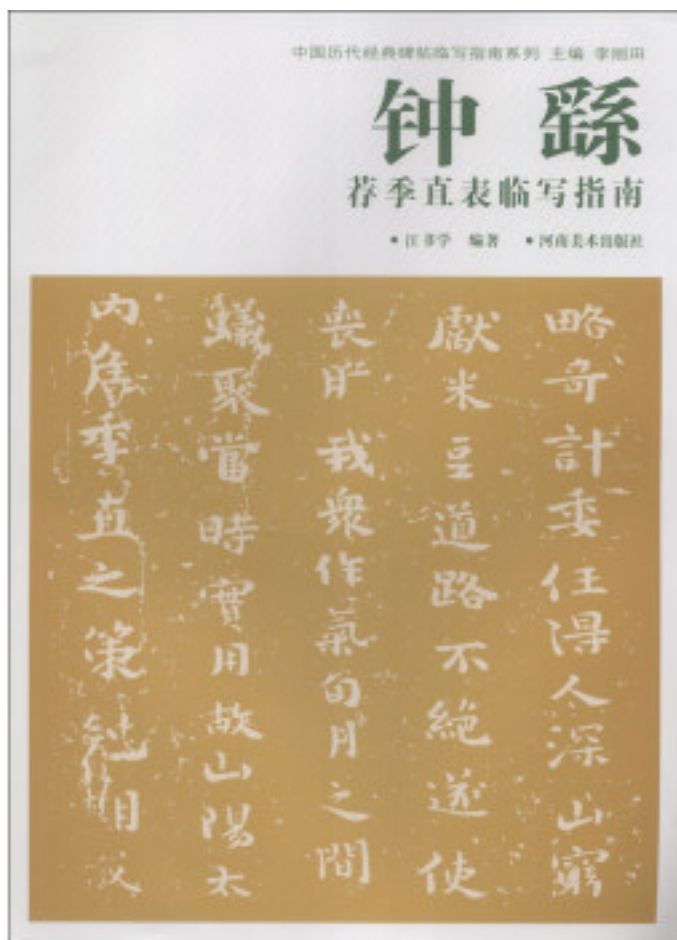 中国历代经典碑帖临写指南系列 主编 李刚田
钟 繇
荐季直表临写指南
• 江书学 编著 • 河南美术出版社
略奇計委任得人深山窮
獻米豆道路不絕遂使
喪膽我衆作氣旬月之間
蟻聚當時實用故山陽太
內房季直之策尅期成